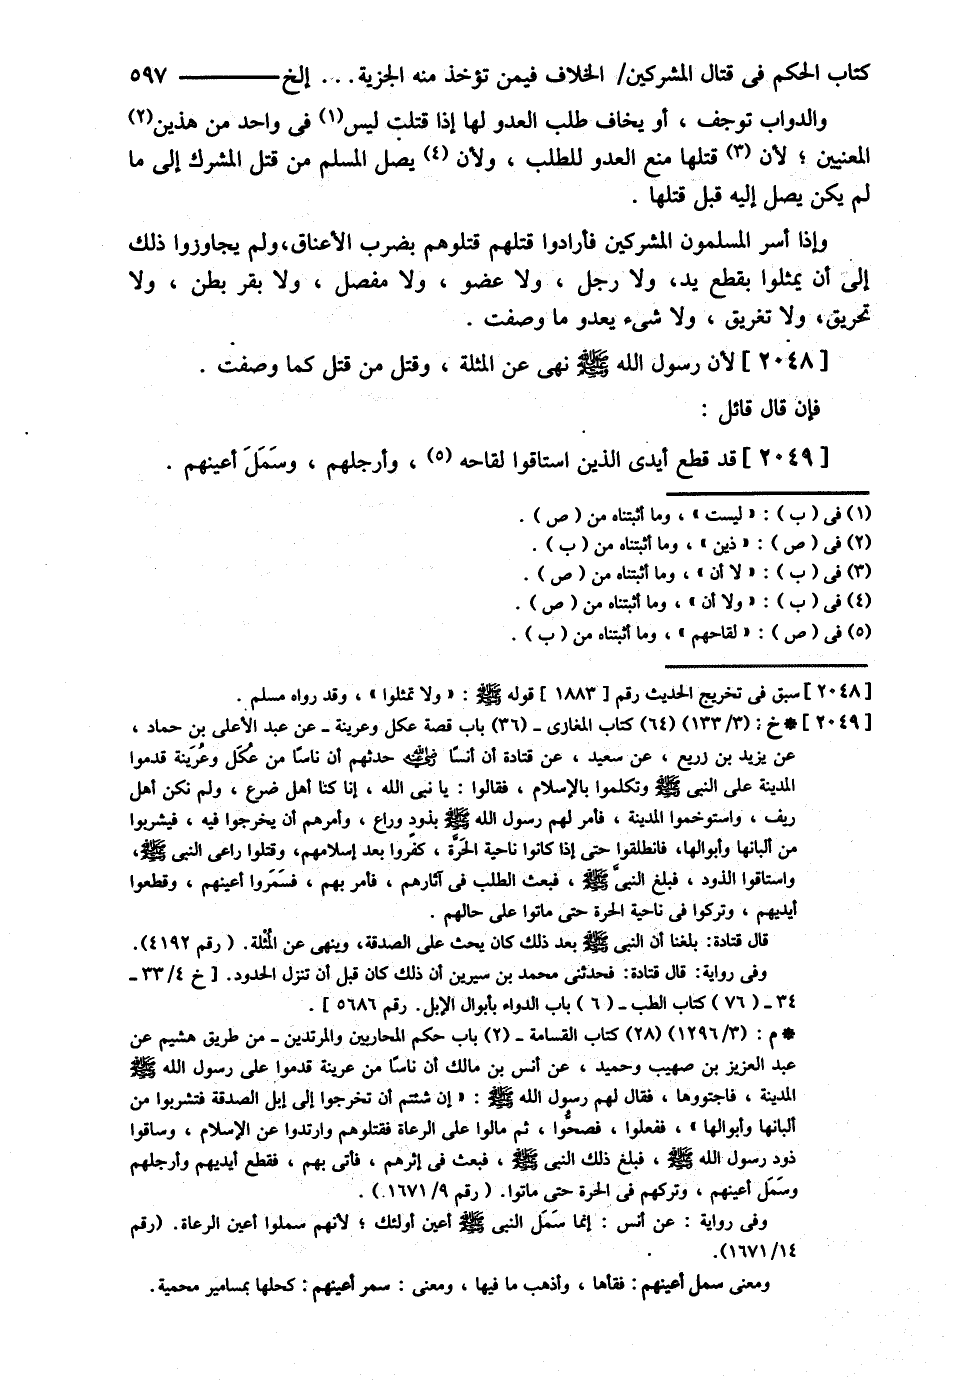 كتاب الحكم فى قتال المشركين/ الخلاف فيمن تؤخذ منه الجزية ... إلخ ـــــــ ٥٩٧
والدواب توجف ، أو يخاف طلب العدو لها إذا قتلت ليس(١) فى واحد من هذين(٢)
المعنيين ؛ لأن (٣) قتلها منع العدو للطلب ، ولأن (٤) يصل المسلم من قتل المشرك إلى ما
لم يكن يصل إليه قبل قتلها .
وإذا أسر المسلمون المشركين فأرادوا قتلهم قتلوهم بضرب الأعناق،ولم يجاوزوا ذلك
إلى أن يمثلوا بقطع يد، ولا رجل ، ولا عضو ، ولا مفصل ، ولا بقر بطن ، ولا
تحريق، ولا تغريق ، ولا شىء يعدو ما وصفت .
[ ٢٠٤٨ ] لأن رسول الله ﷺ نهى عن المثلة ، وقتل من قتل كما وصفت .
فإن قال قائل :
[ ٢٠٤٩ ] قد قطع أيدى الذين استاقوا لقاحه (٥) ، وأرجلهم ، وسَمَلَ أعينهم .
(١) فى ( ب ) : « ليست » ، وما أثبتناه من ( ص ) .
(٢) فى ( ص ) : « ذين » ، وما أثبتناه من ( ب ) .
(٣) فى ( ب ) : « لا أن » ، وما أثبتناه من ( ص ) .
(٤) فى ( ب ) : « ولا أن » ، وما أثبتناه من ( ص ) .
(٥) فى ( ص ) : « لقاحهم » ، وما أثبتناه من ( ب ) .
[ ٢٠٤٨ ] سبق فى تخريج الحديث رقم [ ١٨٨٣ ] قوله ﷺ : « ولا تمثلوا » ، وقد رواه مسلم .
[ ٢٠٤٩ ] * خ : (٣/ ١٣٣) (٦٤) كتاب المغازى ـ (٣٦) باب قصة عكل وعرينة ـ عن عبد الأعلى بن حماد ،
عن يزيد بن زريع ، عن سعيد ، عن قتادة أن أنسًا رضي الله عنه حدثهم أن ناسًا من عُكَل وعُرَينة قدموا
المدينة على النبى ﷺ وتكلموا بالإسلام ، فقالوا : يا نبى الله ، إنا كنا أهل ضرع ، ولم نكن أهل
ريف ، واستوخموا المدينة ، فأمر لهم رسول الله ﷺ بذود وراع ، وأمرهم أن يخرجوا فيه ، فيشربوا
من ألبانها وأبوالها، فانطلقوا حتى إذا كانوا ناحية الحَرَّة ، كفروا بعد إسلامهم، وقتلوا راعى النبى ﷺ،
واستاقوا الذود ، فبلغ النبىَّ ﷺ ، فبعث الطلب فى آثارهم ، فأمر بهم ، فسَمَروا أعينهم ، وقطعوا
أيديهم ، وتركوا فى ناحية الحرة حتى ماتوا على حالهم .
قال قتادة: بلغنا أن النبى ﷺ بعد ذلك كان يحث على الصدقة، وينهى عن المُثْلة. ( رقم ٤١٩٢).
وفى رواية: قال قتادة: فحدثنى محمد بن سيرين أن ذلك كان قبل أن تنزل الحدود. [ خ ٤/ ٣٣ ـ
٣٤ ـ ( ٧٦ ) كتاب الطب ـ ( ٦ ) باب الدواء بأبوال الإبل. رقم ٥٦٨٦ ] .
* م : (٣/ ١٢٩٦) (٢٨) كتاب القسامة ـ (٢) باب حكم المحاربين والمرتدين ـ من طريق هشيم عن
عبد العزيز بن صهيب وحميد ، عن أنس بن مالك أن ناسًا من عرينة قدموا على رسول الله ﷺ
المدينة ، فاجتووها ، فقال لهم رسول الله ﷺ : « إن شئتم أن تخرجوا إلى إبل الصدقة فتشربوا من
ألبانها وأبوالها » ، ففعلوا ، فصحُّوا ، ثم مالوا على الرعاة فقتلوهم وارتدوا عن الإسلام ، وساقوا
ذود رسول الله ﷺ ، فبلغ ذلك النبى ﷺ ، فبعث فى إثرهم ، فأتى بهم ، فقطع أيديهم وأرجلهم
وسَمَل أعينهم ، وتركهم فى الحرة حتى ماتوا. ( رقم ٩/ ١٦٧١ ) .
وفى رواية : عن أنس : إنما سَمَل النبى ﷺ أعين أولئك ؛ لأنهم سملوا أعين الرعاة. (رقم
١٤/ ١٦٧١).
ومعنى سمل أعينهم : فقأها ، وأذهب ما فيها ، ومعنى : سمر أعينهم : كحلها بمسامير محمية .